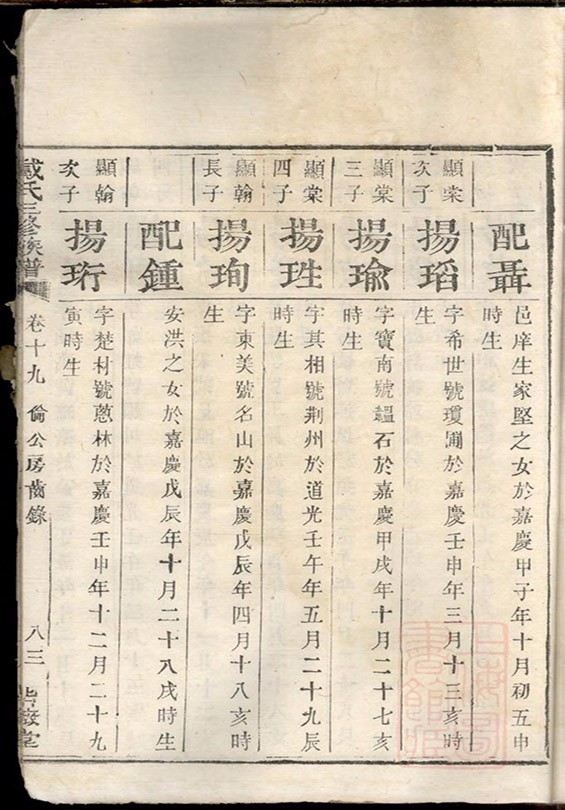 配聶
邑庠生家堅之女於嘉慶甲子年十月初五申
時生
顯棠
次子
揚瑫
字希世號瓊圃於嘉慶壬申年三月十三亥時
生
顯棠
三子
揚瑜
字寶南號韞石於嘉慶甲戌年十月二十七亥
時生
顯棠
四子
揚珄
字其相號荆州於道光壬午年五月二十九辰
時生
顯翰
長子
揚珣
字東美號名山於嘉慶戊辰年四月十八亥時
生
配鍾
安洪之女於嘉慶戊辰年十月二十八戌時生
顯翰
次子
揚珩
字楚材號蔥林於嘉慶壬申年十二月二十九
寅時生
戴氏三修族譜
卷十九
倫公房齒錄
八三
敍堂